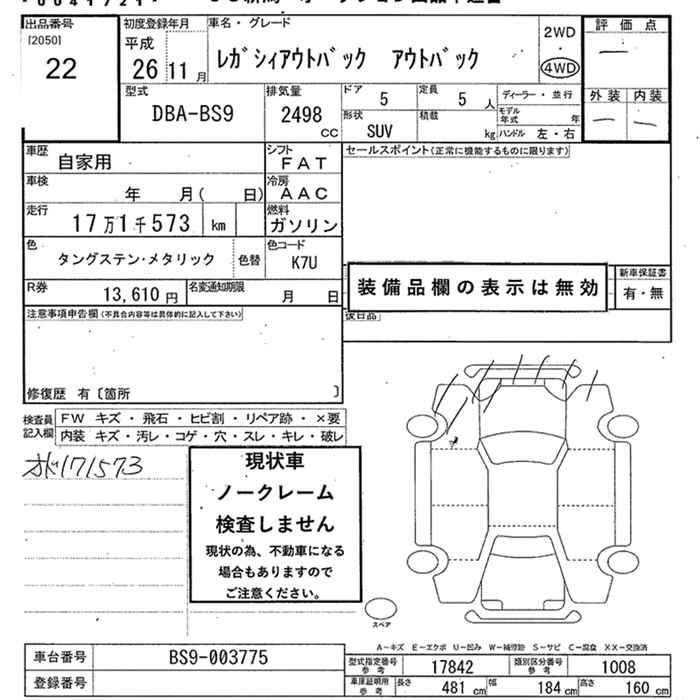 出品番号
[2050]
22
初度登録年月
平成
26 11 月
車名・グレード
レガシィアウトバック アウトバック
2WD
・
4WD
評価点
—
外装 内装
— —
型式
DBA-BS9
排気量
2498
cc
ドア
5
定員
5 人
ディーラー・並行
モデル年式 年
形状
SUV
積載
kg
ハンドル 左・右
車歴
自家用
シフト
FAT
セールスポイント(正常に機能するものに限ります)
車検
年 月( 日)
冷房
AAC
走行
17万1千573 km
燃料
ガソリン
色
タングステン・メタリック
色替
色コード
K7U
装備品欄の表示は無効
新車保証書
有・無
R券
13,610 円
名変通知期限
月 日
後日品
注意事項申告欄(不具合内容等は具体的に記入して下さい)
修復歴 有〔箇所 〕
検査員記入欄
FW キズ・飛石・ヒビ割・リペア跡・×要
内装 キズ・汚レ・コゲ・穴・スレ・キレ・破レ
171573
現状車
ノークレーム
検査しません
現状の為、不動車になる
場合もありますので
ご注意ください。
スペア
A−キズ E−エクボ U−凹み W−補修跡 S−サビ C−腐食 XX−交換済
車台番号
BS9-003775
登録番号
型式指定番号参考
17842
類別区分番号参考
1008
車庫証明用参考
長さ 481 cm 幅 184 cm 高さ 160 cm